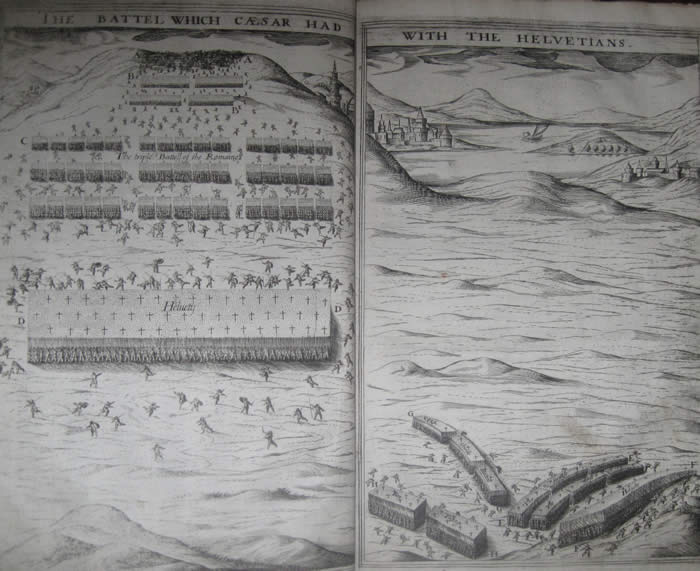 THE BATTEL WHICH CÆSAR HAD
WITH THE HELVETIANS.
A
B
C
The triple Battell of the Romaines
Helvetij
D
D
G